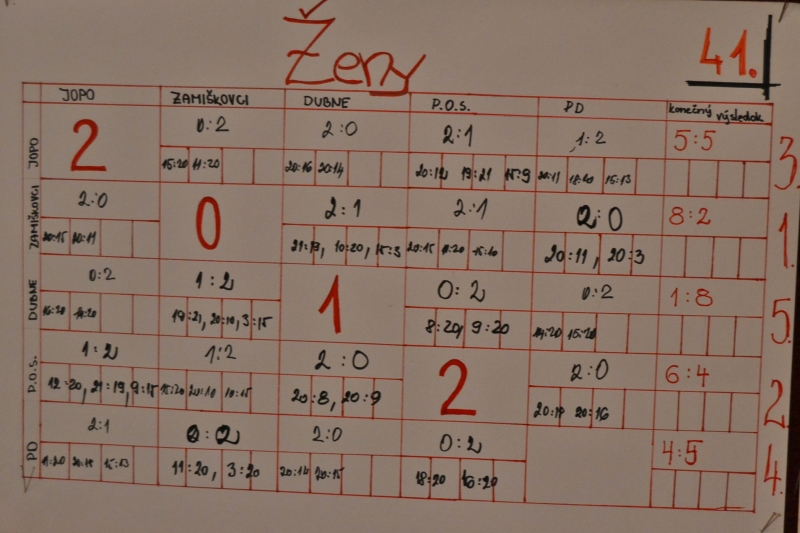 Ženy
41.
JOPO ZAMIŠKOVCI DUBNE P.O.S. PD konečný výsledok
JOPO 2 0:2 2:0 2:1 1:2 5:5 3.
15:20 11:20 20:16 20:14 20:12 19:21 15:9 20:11 15:13
ZAMIŠKOVCI 2:0 0 2:1 2:1 2:0 8:2 1.
20:15 20:11 21:19, 10:20, 15:3 20:15 15:10 20:11, 20:3
DUBNE 0:2 1:2 1 0:2 0:2 1:8 5.
16:20 14:20 19:21, 20:10, 3:15 8:20, 9:20 14:20 15:20
P.O.S. 1:2 1:2 2:0 2 2:0 6:4 2.
12:20, 21:19, 9:15 15:20 20:10 10:15 20:8, 20:9 20:18 20:16
PD 2:1 0:2 2:0 0:2 4:5 4.
11:20 15:13 11:20, 3:20 20:14 20:15 18:20 16:20